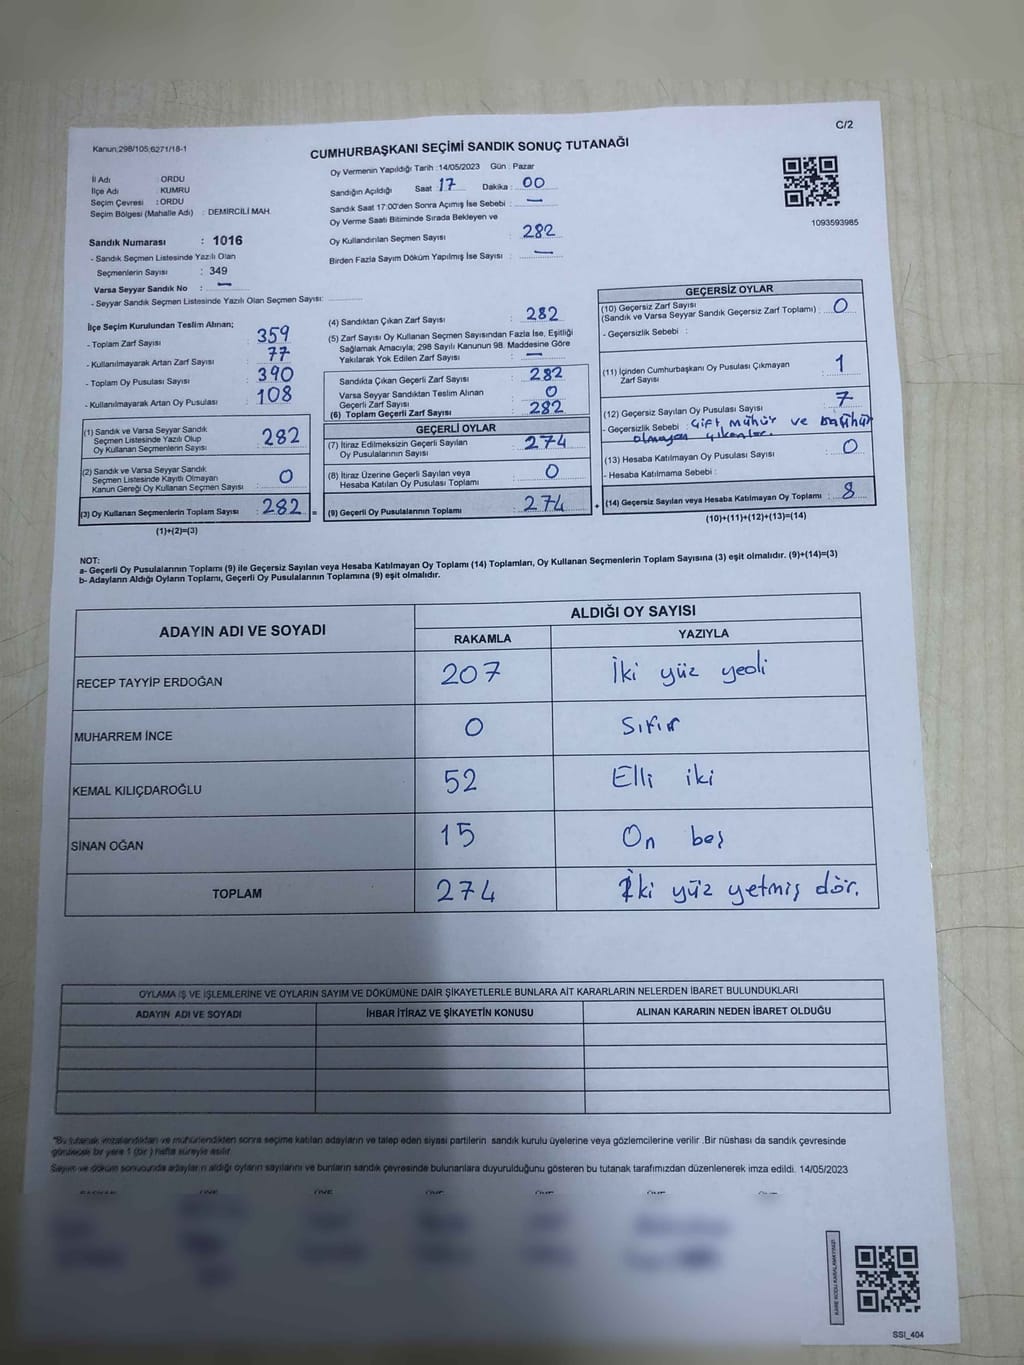 C/2
Kanun:298/105;6271/18-1
CUMHURBAŞKANI SEÇİMİ SANDIK SONUÇ TUTANAĞI
İl Adı : ORDU
İlçe Adı : KUMRU
Seçim Çevresi : ORDU
Seçim Bölgesi (Mahalle Adı) : DEMİRCİLİ MAH.
Sandık Numarası : 1016
- Sandık Seçmen Listesinde Yazılı Olan
Seçmenlerin Sayısı : 349
Varsa Seyyar Sandık No : —
- Seyyar Sandık Seçmen Listesinde Yazılı Olan Seçmen Sayısı:
Oy Vermenin Yapıldığı Tarih : 14/05/2023 Gün : Pazar
Sandığın Açıldığı Saat : 17 Dakika : 00
Sandık Saat 17:00'den Sonra Açımış İse Sebebi : —
Oy Verme Saati Bitiminde Sırada Bekleyen ve
Oy Kullandırılan Seçmen Sayısı : 282
Birden Fazla Sayım Döküm Yapılmış İse Sayısı : —
1093593985
İlçe Seçim Kurulundan Teslim Alınan;
- Toplam Zarf Sayısı : 359
- Kullanılmayarak Artan Zarf Sayısı : 77
- Toplam Oy Pusulası Sayısı : 390
- Kullanılmayarak Artan Oy Pusulası : 108
(1) Sandık ve Varsa Seyyar Sandık
Seçmen Listesinde Yazılı Olup
Oy Kullanan Seçmenlerin Sayısı : 282
(2) Sandık ve Varsa Seyyar Sandık
Seçmen Listesinde Kayıtlı Olmayan
Kanun Gereği Oy Kullanan Seçmen Sayısı : 0
(3) Oy Kullanan Seçmenlerin Toplam Sayısı : 282 =
(1)+(2)=(3)
(4) Sandıktan Çıkan Zarf Sayısı : 282
(5) Zarf Sayısı Oy Kullanan Seçmen Sayısından Fazla İse, Eşitliği
Sağlamak Amacıyla; 298 Sayılı Kanunun 98. Maddesine Göre
Yakılarak Yok Edilen Zarf Sayısı : —
Sandıkta Çıkan Geçerli Zarf Sayısı : 282
Varsa Seyyar Sandıktan Teslim Alınan
Geçerli Zarf Sayısı : 0
(6) Toplam Geçerli Zarf Sayısı : 282
GEÇERLİ OYLAR
(7) İtiraz Edilmeksizin Geçerli Sayılan
Oy Pusulalarının Sayısı : 274
(8) İtiraz Üzerine Geçerli Sayılan veya
Hesaba Katılan Oy Pusulası Toplamı : 0
(9) Geçerli Oy Pusulalarının Toplamı : 274 +
GEÇERSİZ OYLAR
(10) Geçersiz Zarf Sayısı
(Sandık ve Varsa Seyyar Sandık Geçersiz Zarf Toplamı) : 0
- Geçersizlik Sebebi :
(11) İçinden Cumhurbaşkanı Oy Pusulası Çıkmayan
Zarf Sayısı : 1
(12) Geçersiz Sayılan Oy Pusulası Sayısı : 7
- Geçersizlik Sebebi : Çift mühür ve
olmayan
(13) Hesaba Katılmayan Oy Pusulası Sayısı : 0
- Hesaba Katılmama Sebebi :
(14) Geçersiz Sayılan veya Hesaba Katılmayan Oy Toplamı : 8
(10)+(11)+(12)+(13)=(14)
NOT:
a- Geçerli Oy Pusulalarının Toplamı (9) ile Geçersiz Sayılan veya Hesaba Katılmayan Oy Toplamı (14) Toplamları, Oy Kullanan Seçmenlerin Toplam Sayısına (3) eşit olmalıdır. (9)+(14)=(3)
b- Adayların Aldığı Oyların Toplamı, Geçerli Oy Pusulalarının Toplamına (9) eşit olmalıdır.
ADAYIN ADI VE SOYADI ALDIĞI OY SAYISI
RAKAMLA YAZIYLA
RECEP TAYYİP ERDOĞAN 207 İki yüz yedi
MUHARREM İNCE 0 Sıfır
KEMAL KILIÇDAROĞLU 52 Elli iki
SİNAN OĞAN 15 On beş
TOPLAM 274 İki yüz yetmiş dör.
OYLAMA İŞ VE İŞLEMLERİNE VE OYLARIN SAYIM VE DÖKÜMÜNE DAİR ŞİKAYETLERLE BUNLARA AİT KARARLARIN NELERDEN İBARET BULUNDUKLARI
ADAYIN ADI VE SOYADI İHBAR İTİRAZ VE ŞİKAYETİN KONUSU ALINAN KARARIN NEDEN İBARET OLDUĞU
"Bu tutanak imzalandıktan ve mühürlendikten sonra seçime katılan adayların ve talep eden siyasi partilerin sandık kurulu üyelerine veya gözlemcilerine verilir .Bir nüshası da sandık çevresinde
görülecek bir yere 1 (bir ) hafta süreyle asılır.
Sayım ve döküm sonucunda adayların aldığı oyların sayılarını ve bunların sandık çevresinde bulunanlara duyurulduğunu gösteren bu tutanak tarafımızdan düzenlenerek imza edildi. 14/05/2023
SSI_404